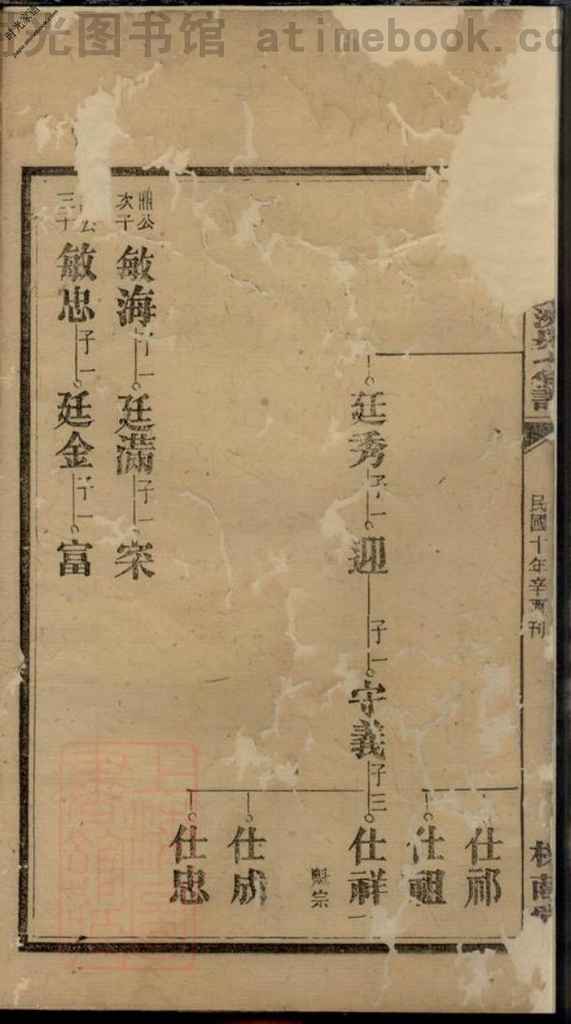 时光图书馆 atimebook.co
民國十年辛酉刊
仕祁
仕祖
廷秀
子一
迎
子一
守義
子三
仕祥
仕成
仕忠
公
次子
敏海
子一
廷滿
子一
宋
公
三子
敏忠
子一
廷金
子一
富